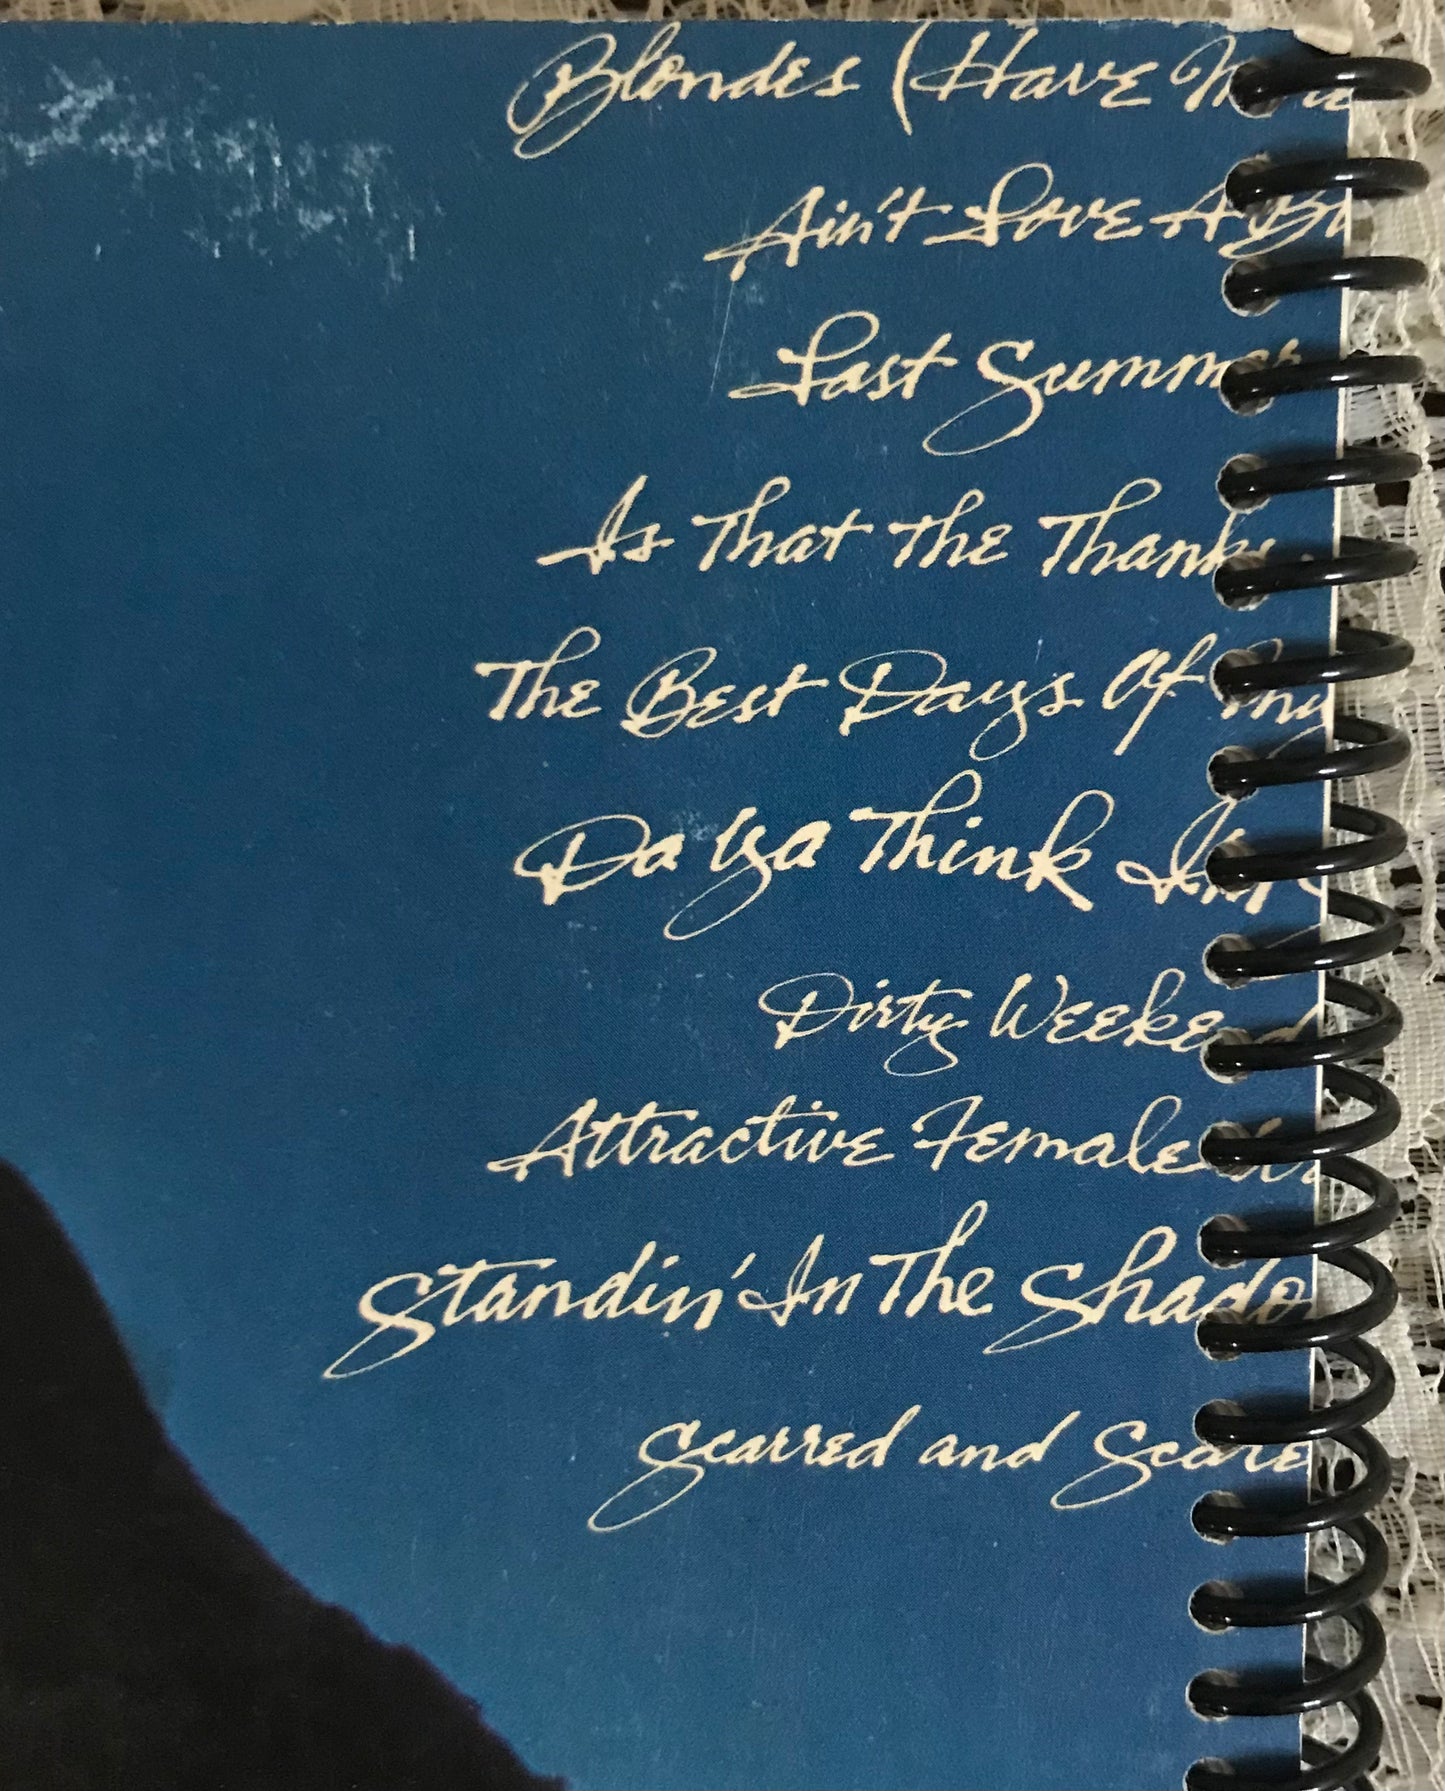 Blondes (Have More
Ain't Love A Bi
Last Summer
Is That The Thanks
The Best Days Of My
Da Ya Think I'm
Dirty Weekend
Attractive Female
Standin' In The Shado
Scarred and Scare